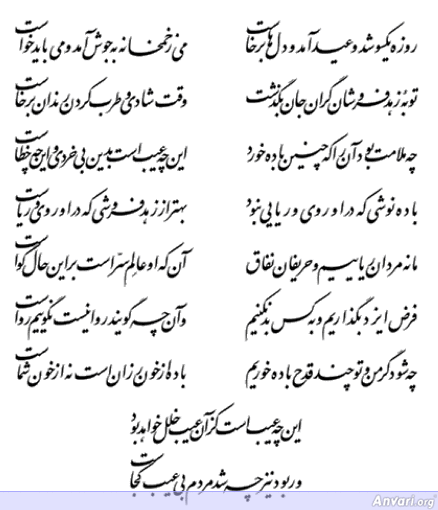 روزه یکسو شد و عید آمد و دل‌ها برخاست می ز خمخانه به جوش آمد و می باید خواست
توبه زهد فروشان گران جان بگذشت وقت شادی و طرب کردن رندان برخاست
چه ملامت بود آن را که چنین باده خورد این چه عیب است بدین بی خردی و این چه خطاست
باده نوشی که در او روی و ریایی نبود بهتر از زهد فروشی که در او روی و ریاست
ما نه مردان ریاییم و حریفان نفاق آن که او عالم سرّ است بر این حال گواست
فرض ایزد بگذاریم و به کس بد نکنیم وآن چه گویند روا نیست نگوییم رواست
چه شود گر من و تو چند قدح باده خوریم باده از خون رزان است نه از خون شماست
این چه عیب است کز آن عیب خلل خواهد بود
ور بود نیز چه شد مردم بی عیب کجاست
Anvari.org